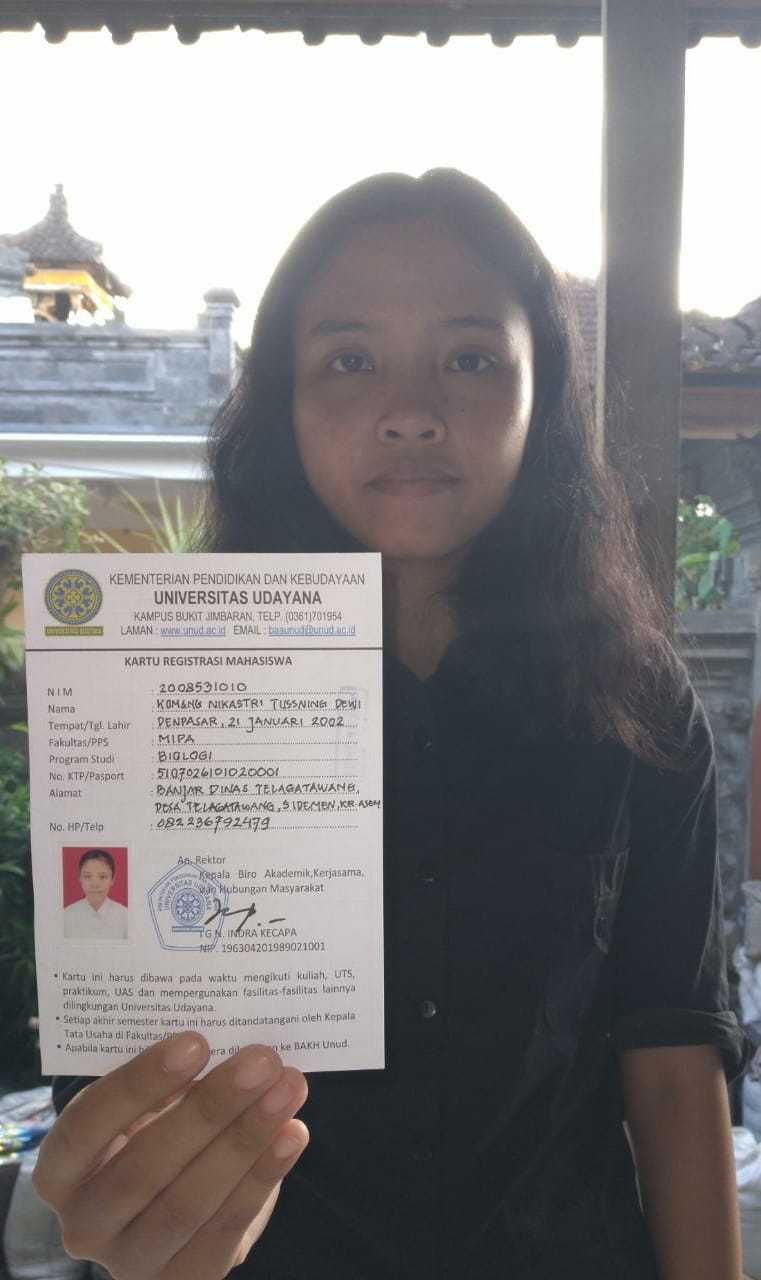 KEMENTERIAN PENDIDIKAN DAN KEBUDAYAAN
UNIVERSITAS UDAYANA
KAMPUS BUKIT JIMBARAN, TELP. (0361)701954
LAMAN : www.unud.ac.id EMAIL : baaunud@unud.ac.id
UNIVERSITAS UDAYANA
KARTU REGISTRASI MAHASISWA
N I M : 2008531010
Nama : KOMANG NIKASTRI TUSSNING DEWI
Tempat/Tgl. Lahir : DENPASAR, 21 JANUARI 2002
Fakultas/PPS : MIPA
Program Studi : BIOLOGI
No. KTP/Pasport : 5107026101020001
Alamat : BANJAR DINAS TELAGATAWANG,
DESA TELAGATAWANG, SIDEMEN, KR. ASEM
No. HP/Telp : 082236792479
An. Rektor
Kepala Biro Akademik,Kerjasama,
dan Hubungan Masyarakat
UNIVERSITAS UDAYANA
I G N. INDRA KECAPA
NIP. 196304201989021001
• Kartu ini harus dibawa pada waktu mengikuti kuliah, UTS,
praktikum, UAS dan mempergunakan fasilitas-fasilitas lainnya
dilingkungan Universitas Udayana.
• Setiap akhir semester kartu ini harus ditandatangani oleh Kepala
Tata Usaha di Fakultas/
• Apabila kartu ini ke BAKH Unud.